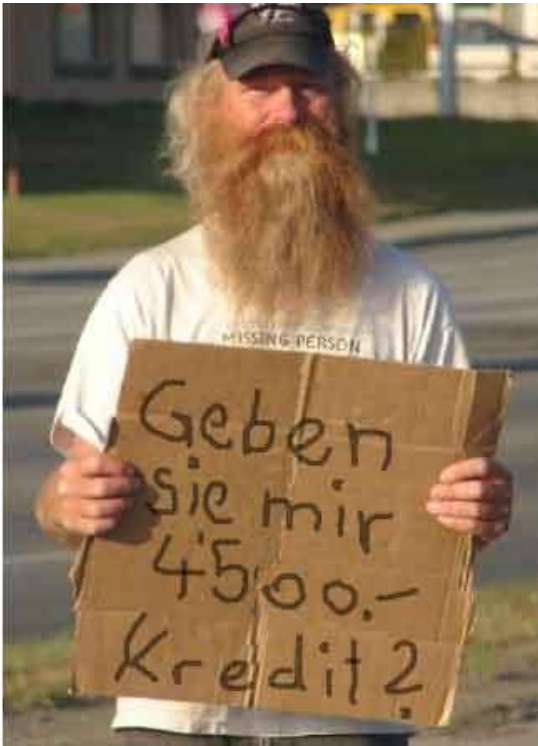 MISSING PERSON
Geben
sie mir
4'500.-
Kredit?